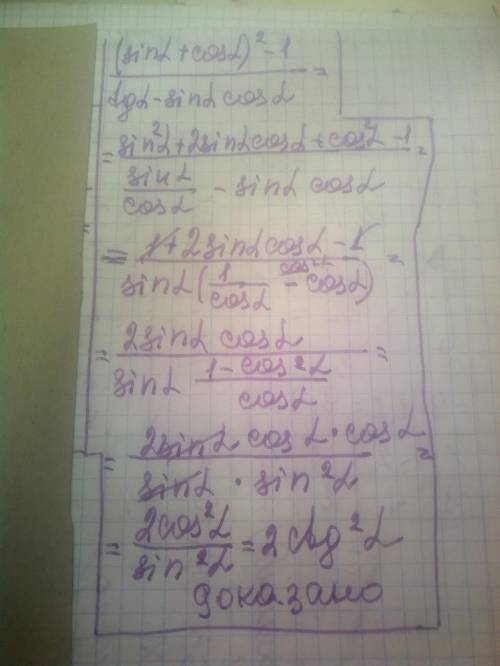 (sinα+cosα)²-1 / tgα-sinα cosα =
= sin²α+2sinαcosα+cos²α-1 / sinα/cosα - sinα cosα =
= 1+2sinαcosα-1 / sinα(1/cosα - cosα) =
= 2sinα cosα / sinα 1-cos²α/cosα =
= 2sinα cosα·cosα / sinα · sin²α =
= 2cos²α / sin²α = 2ctg²α
доказано